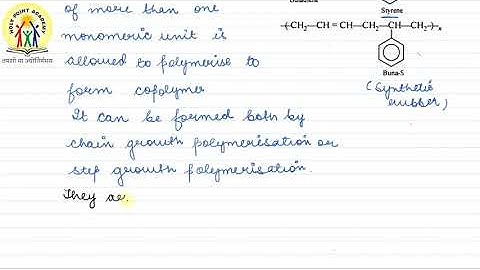 HOLY POINT ACADEMY
तमसो मा ज्योतिर्गमय
of more than one
monomeric unit is
allowed to polymerise to
form copolymer
It can be formed both by
chain growth polymerisation or
step growth polymerisation.
They ae.
Styrene
-(CH₂-CH=CH-CH₂-CH-CH₂)-n
Buna-S
(Synthetic
rubber)